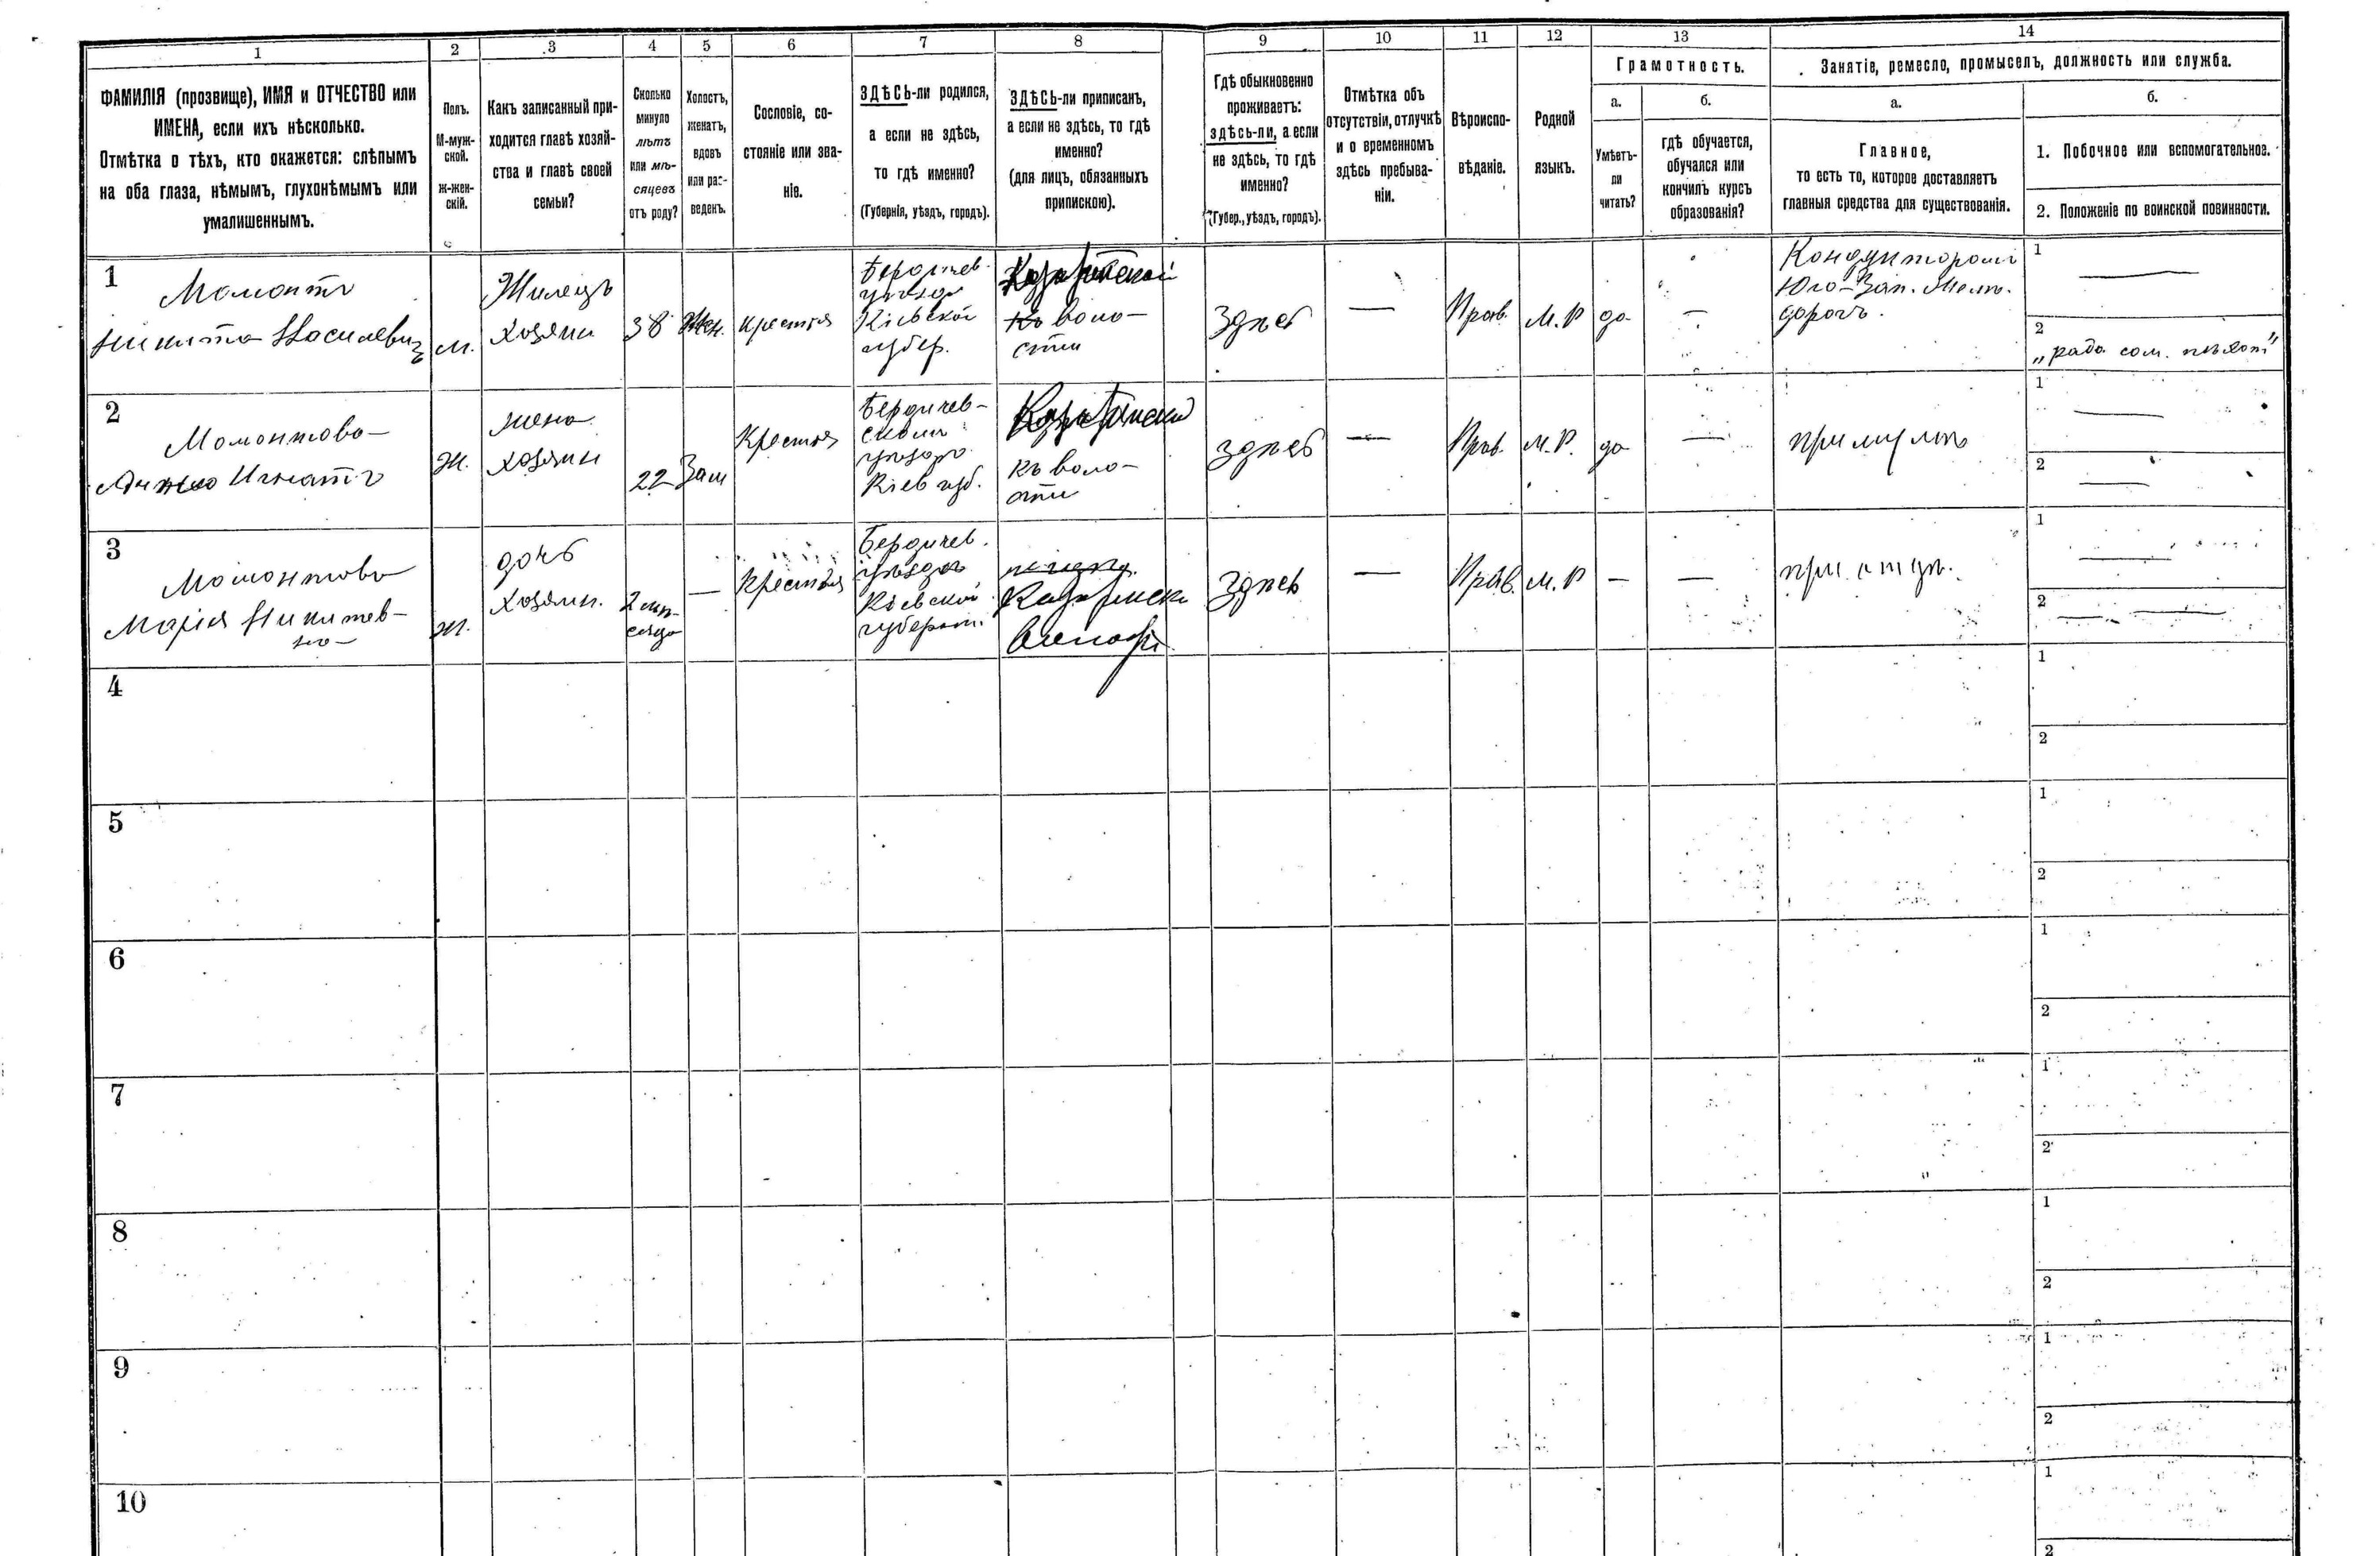 1 2 3 4 5 6 7 8 9 10 11 12 13 14
ФАМИЛІЯ (прозвище), ИМЯ и ОТЧЕСТВО или
ИМЕНА, если ихъ нѣсколько.
Отмѣтка о тѣхъ, кто окажется: слѣпымъ
на оба глаза, нѣмымъ, глухонѣмымъ или
умалишеннымъ.
Полъ.
М-муж-
ской.
ж-жен-
скій.
Какъ записанный при-
ходится главѣ хозяй-
ства и главѣ своей
семьи?
Сколько
минуло
лѣтъ
или мѣ-
сяцевъ
отъ роду?
Холостъ,
женатъ,
вдовъ
или раз-
веденъ.
Сословіе, со-
стояніе или зва-
ніе.
ЗДѢСЬ-ли родился,
а если не здѣсь,
то гдѣ именно?
(Губернія, уѣздъ, городъ).
ЗДѢСЬ-ли приписанъ,
а если не здѣсь, то гдѣ
именно?
(для лицъ, обязанныхъ
припискою).
Гдѣ обыкновенно
проживаетъ:
здѣсь-ли, а если
не здѣсь, то гдѣ
именно?
(Губер., уѣздъ, городъ).
Отмѣтка объ
отсутствіи, отлучкѣ
и о временномъ
здѣсь пребыва-
ніи.
Вѣроиспо-
вѣданіе.
Родной
языкъ.
Грамотность.
а.
Умѣетъ-
ли
читать?
б.
гдѣ обучается,
обучался или
кончилъ курсъ
образованія?
Занятіе, ремесло, промыселъ, должность или служба.
а.
Главное,
то есть то, которое доставляетъ
главныя средства для существованія.
б.
1. Побочное или вспомогательное.
2. Положеніе по воинской повинности.
1
Мамонтъ
Никита
м.
Жилецъ
Хозяин
38
Жен.
Крестья
Бердичев.
уѣзда
Кіевской
губер.
воло-
сти
Здѣсь
—
Прав.
М. Р
да
—
Кондукторомъ
Юго-Зап. Желѣз.
дорогъ.
1
—
2
2
Мамонтова
Анна Игнатъ
Ж.
жена
хозяин
22
Зам
Крестья
Бердичев-
скомъ
уѣздѣ
Кіев губ.
къ воло-
сти
здѣсь
—
Прав.
М. Р.
да
—
при мужѣ
1
—
2
—
3
Мамонтова
Марія Никитев-
на
Ж.
дочь
Хозяин.
2 мѣ-
сяца
—
Крестья
Бердичев.
уѣзда
Кіевской
губерніи.
Здѣсь
—
Прав.
М. Р
—
—
при отцѣ.
1
—
2
—
4
1
2
5
1
2
6
1
2
7
1
2
8
1
2
9
1
2
10
1
2